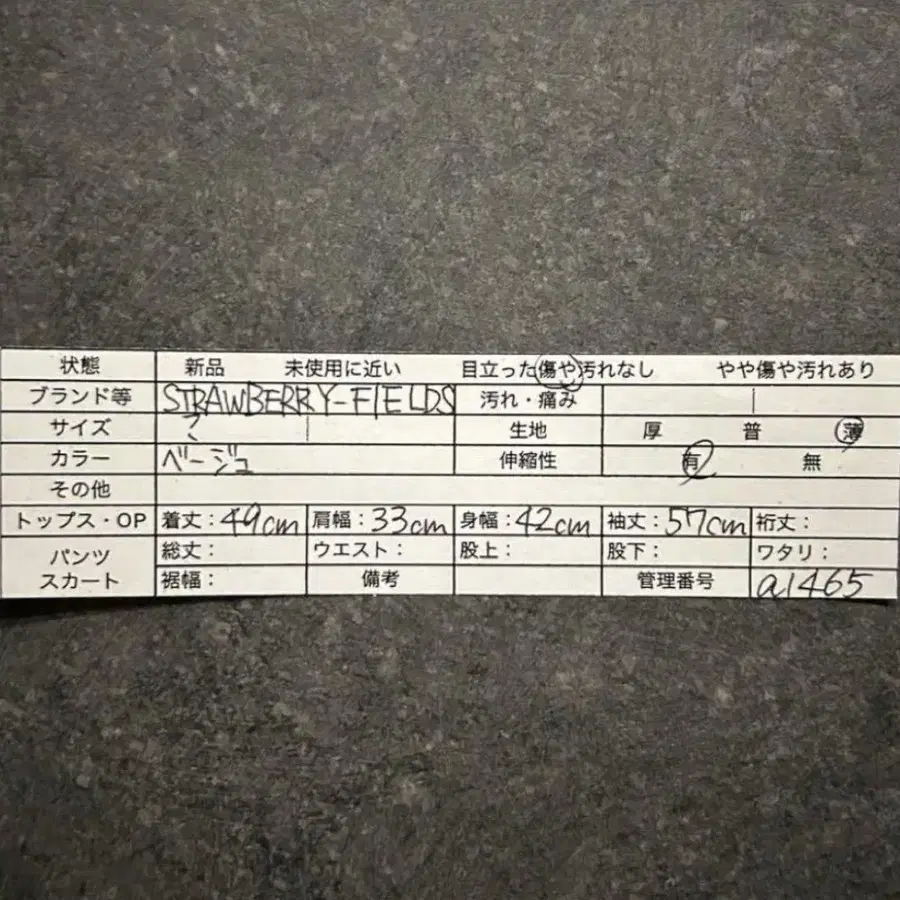 状態 新品 未使用に近い 目立った傷や汚れなし やや傷や汚れあり
ブランド等 STRAWBERRY-FIELDS 汚れ・痛み
サイズ ? 生地 厚 普 薄
カラー ベージュ 伸縮性 有 無
その他
トップス・OP 着丈:49cm 肩幅:33cm 身幅:42cm 袖丈:57cm 裄丈:
パンツ スカート 総丈: ウエスト: 股上: 股下: ワタリ:
裾幅: 備考 管理番号 a1465